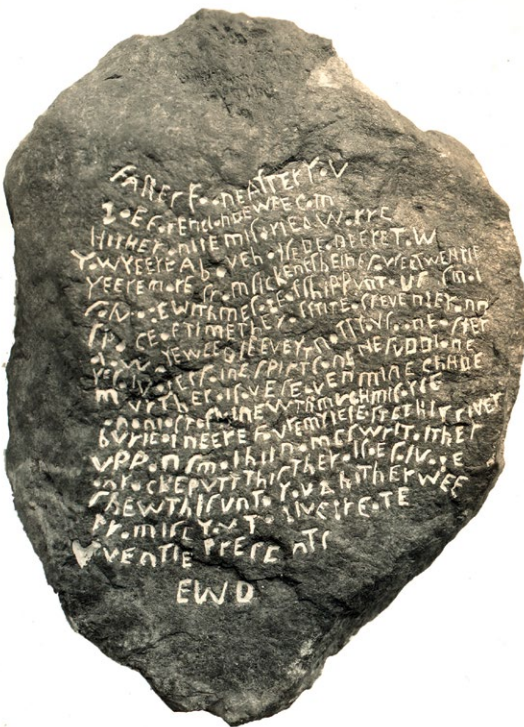 FATHER SOONE AFTER YOV
GOE FOR ENGLANDE WEE CAM
HITHER ONLIE MISARIE & WARRE
TOW YEERE ABOVE HALFE DEADE ERE TOW
YEERE MORE FROM SICKENES BEINE FOVRE & TWENTIE
SALVAGE WITH MESAGE OF SHIPP VNTO VS SMAL
SPACE OF TIME THEY AFFRITE OF REVENGE RANN
AL AWAYE WEE BLEEVE YT NOTT YOV SOONE AFTER
YE SALVAGES FAINE SPIRTS ANGRIE SVDDIANE
MVRTHER AL SAVE SEAVEN MINE CHILDE
ANANIAS TO SLAINE WTH MVCH MISARIE
BVRIE AL NEERE FOVRE MYLES EASTE THIS RIVER
VPPON SMAL HIL NAMES WRIT AL THER
ON ROCKE PVTT THIS THER ALSOE SALVAGE
SHEW THIS VNTO YOV & HITHER WEE
PROMISE YOV TO GIVE GREATE
PLENTIE PRESENTS
EWD